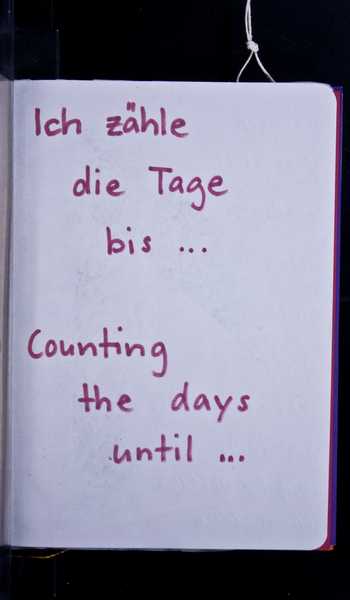 Ich zähle
die Tage
bis ...
Counting
the days
until ...